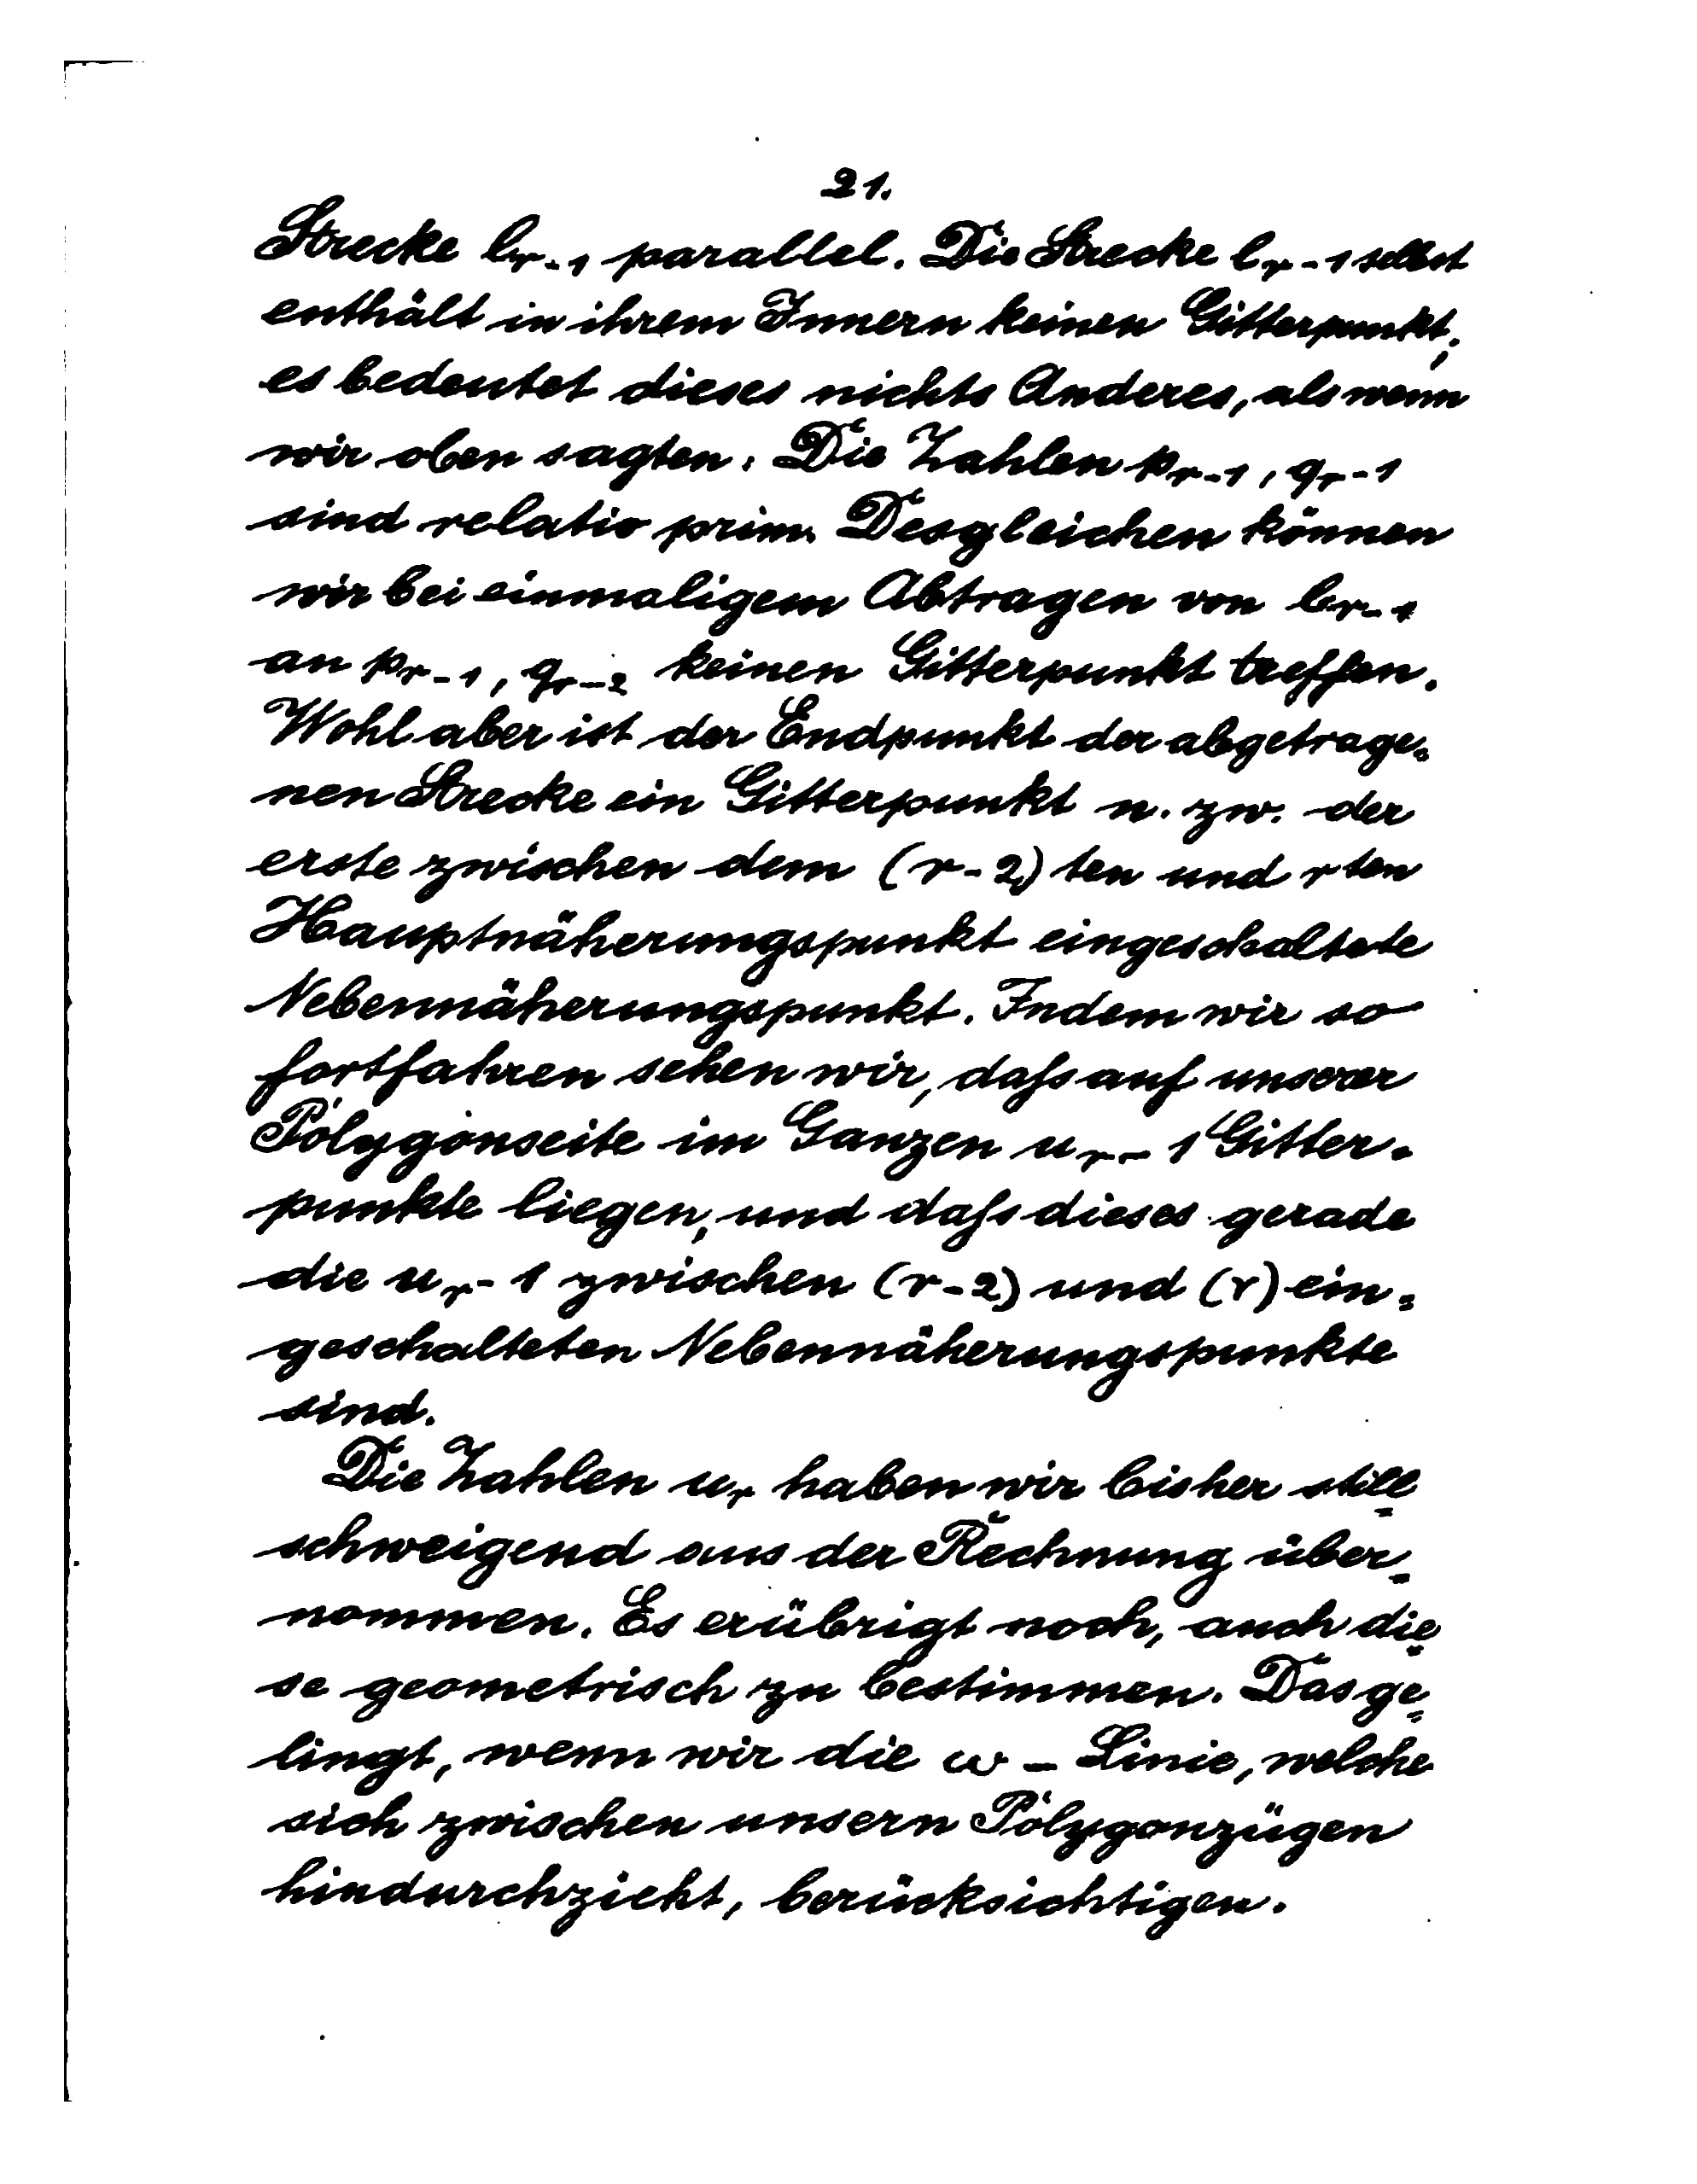 21.
Strecke l_{r-1} parallel. Die Strecke l_{r-1} selbst
enthält in ihrem Innern keinen Gitterpunkt;
es bedeutet dieses nichts Anderes, als wenn
wir oben sagten: Die Zahlen p_{r-1}, q_{r-1}
sind relativ prim. Desgleichen können
wir bei einmaligem Abtragen von l_{r-1}
an p_{r-1}, q_{r-2} keinen Gitterpunkt treffen.
Wohl aber ist der Endpunkt der abgetrage=
nen Strecke ein Gitterpunkt u. zw. der
erste zwischen dem (r-2)ten und rten
Hauptnäherungspunkt eingeschaltete
Nebennäherungspunkt. Indem wir so
fortfahren sehen wir, daſs auf unserer
Polygonseite im Ganzen u_r - 1 Gitter=
punkte liegen, und daſs dieses gerade
die u_r - 1 zwischen (r-2) und (r) ein=
geschalteten Nebennäherungspunkte
sind.
Die Zahlen u_r haben wir bisher still=
schweigend aus der Rechnung über=
nommen. Es erübrigt noch, auch die=
se geometrisch zu bestimmen. Das ge=
lingt, wenn wir die ω - Linie, welche
sich zwischen unsern Polygonzügen
hindurchzieht, berücksichtigen.